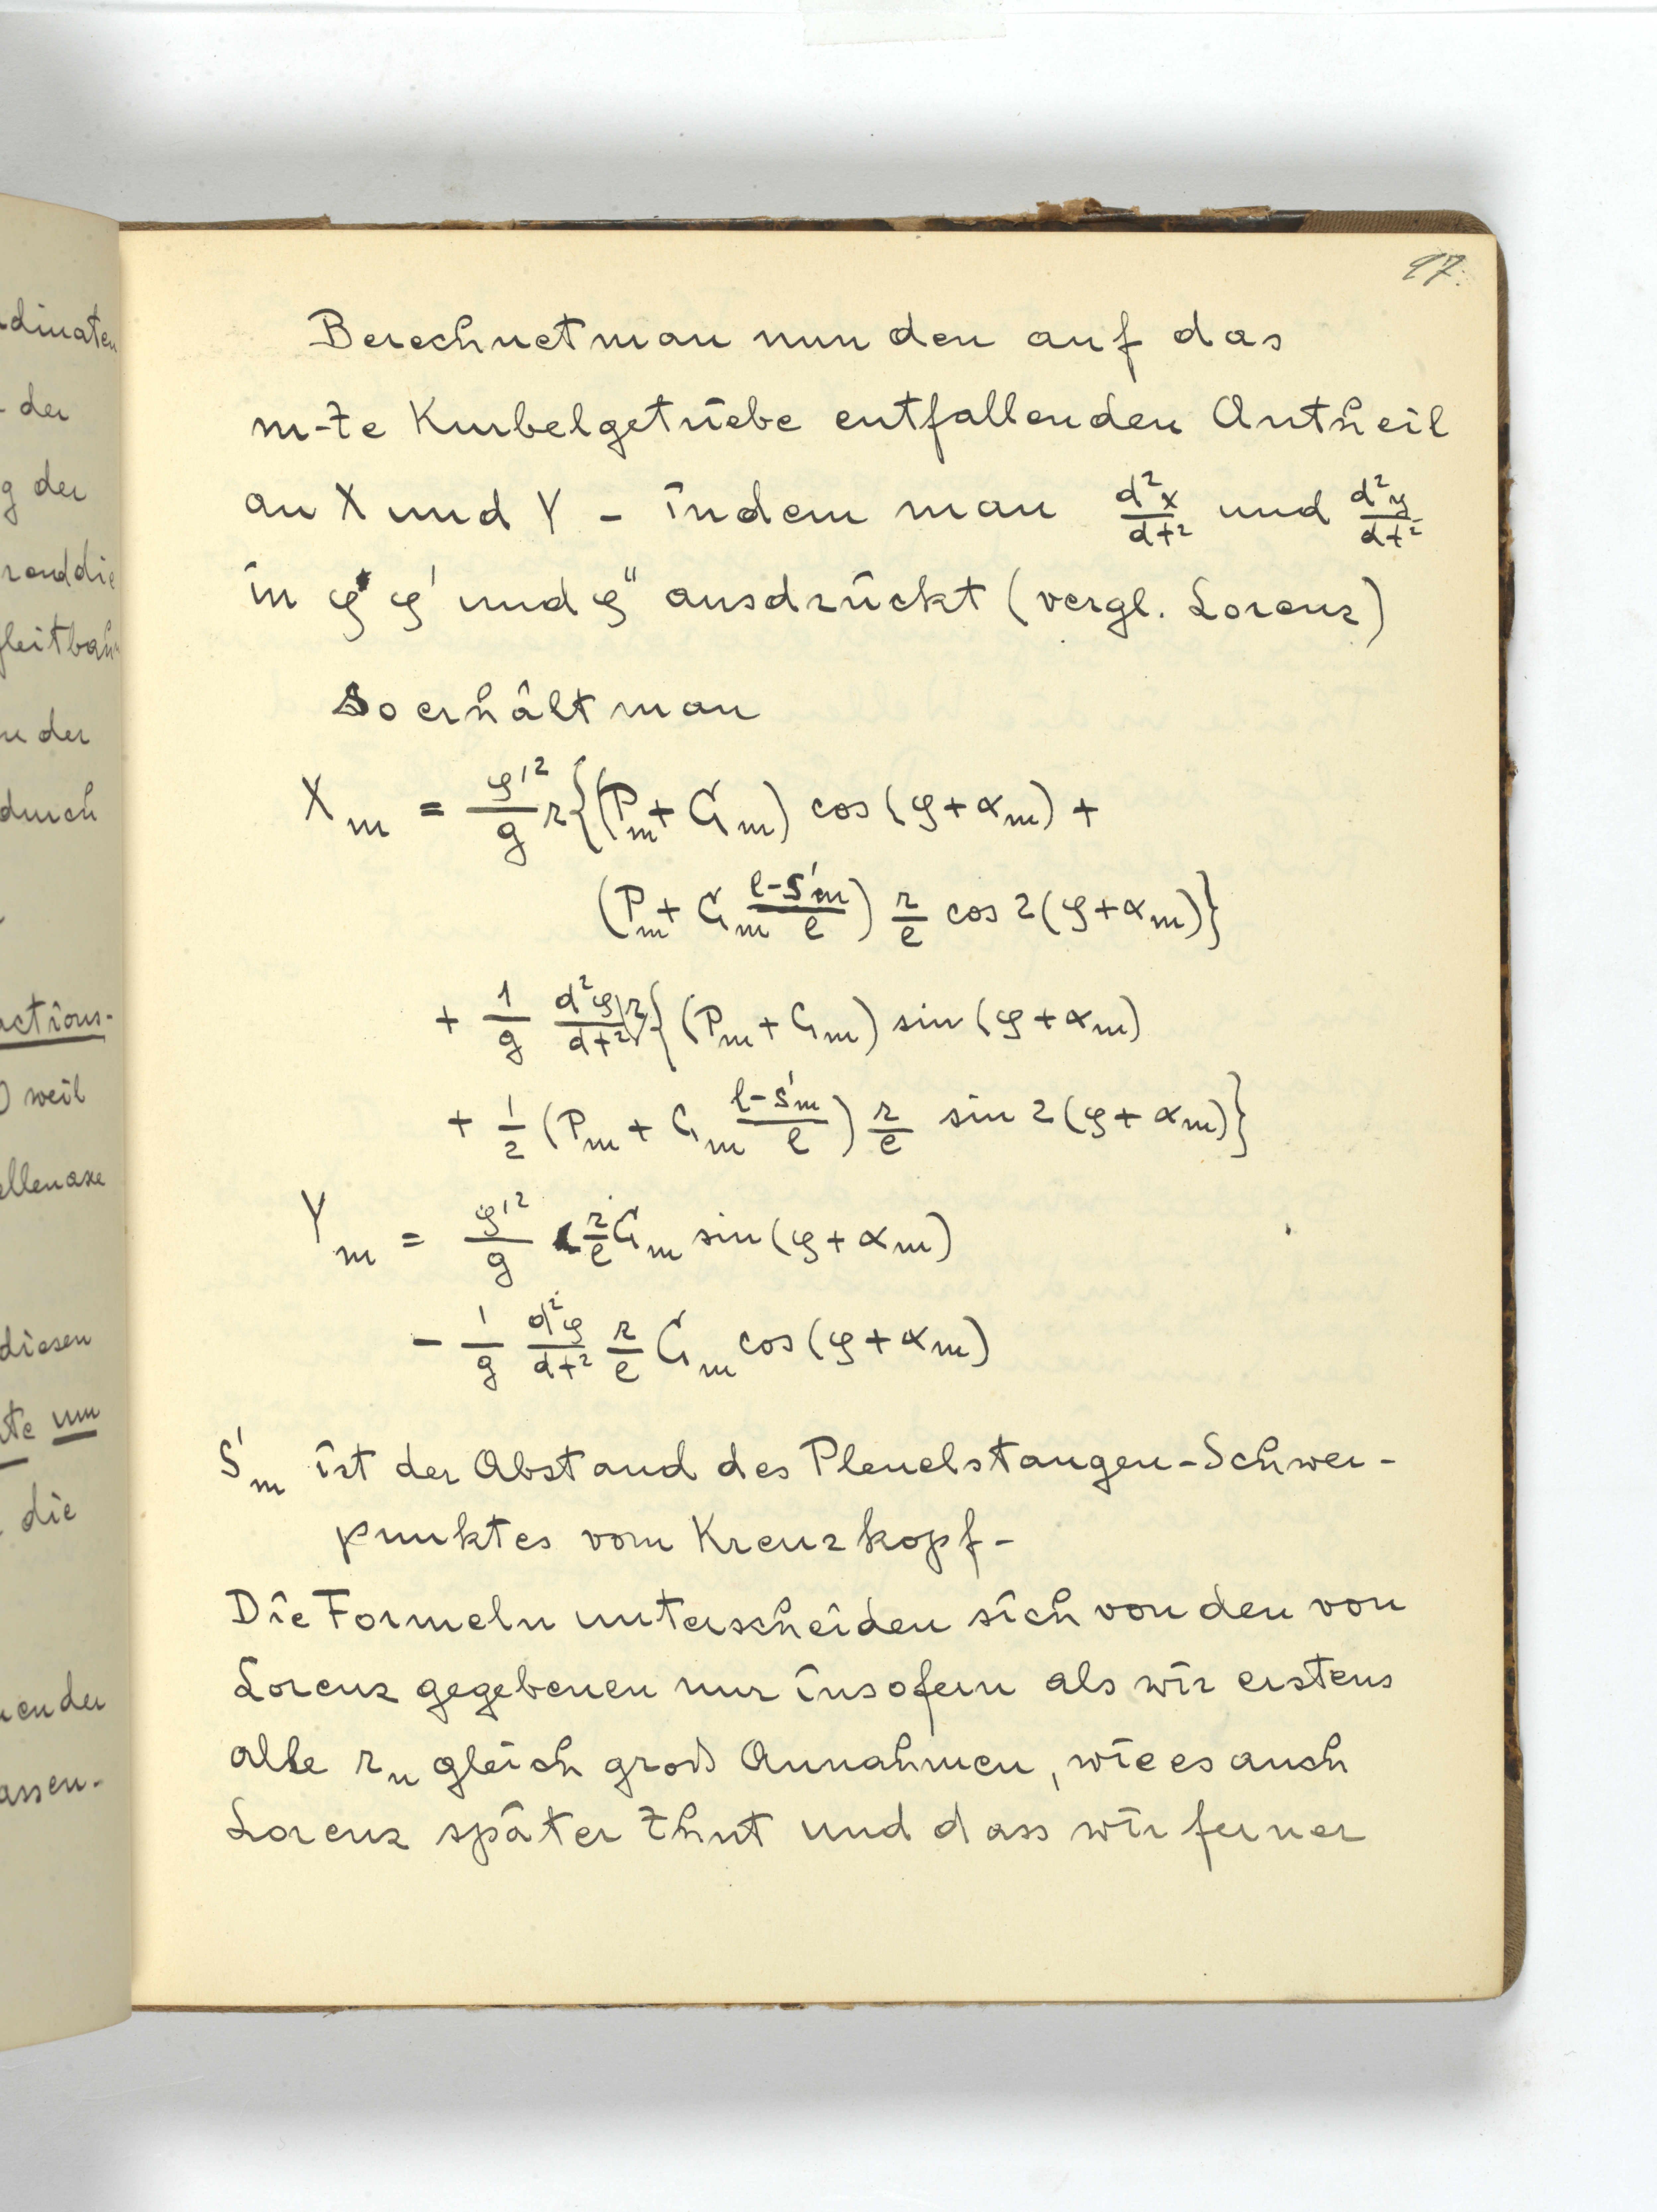 dinaten
der
g der
rond die
gleitbahn
der
durch
actions-
weil
ellenaxe
diesen
te um
die
en der
assen-
17.
Berechnet man nun den auf das
m-te Kurbelgetriebe entfallenden Antheil
an X und Y - indem man d²x/dt² und d²y/dt²
in φ φ' und φ" ausdrückt (vergl. Lorenz)
So erhält man
X_m = φ'²/g r{(P_m + G_m) cos (φ+α_m) +
(P_m + G_m (l-s'_m)/l) r/l cos 2(φ+α_m)}
+ 1/g d²φ/dt² r{(P_m + G_m) sin (φ+α_m)
+ 1/2 (P_m + G_m (l-s'_m)/l) r/l sin 2(φ+α_m)}
Y_m = φ'²/g r/l G_m sin(φ+α_m)
- 1/g d²φ/dt² r/l G_m cos(φ+α_m)
S'_m ist der Abstand des Pleuelstangen-Schwer-
punktes vom Kreuzkopf-
Die Formeln unterscheiden sich von den von
Lorenz gegebenen nur insofern als wir erstens
alle r_n gleich groß Annahmen, wie es auch
Lorenz später thut und dass wir ferner